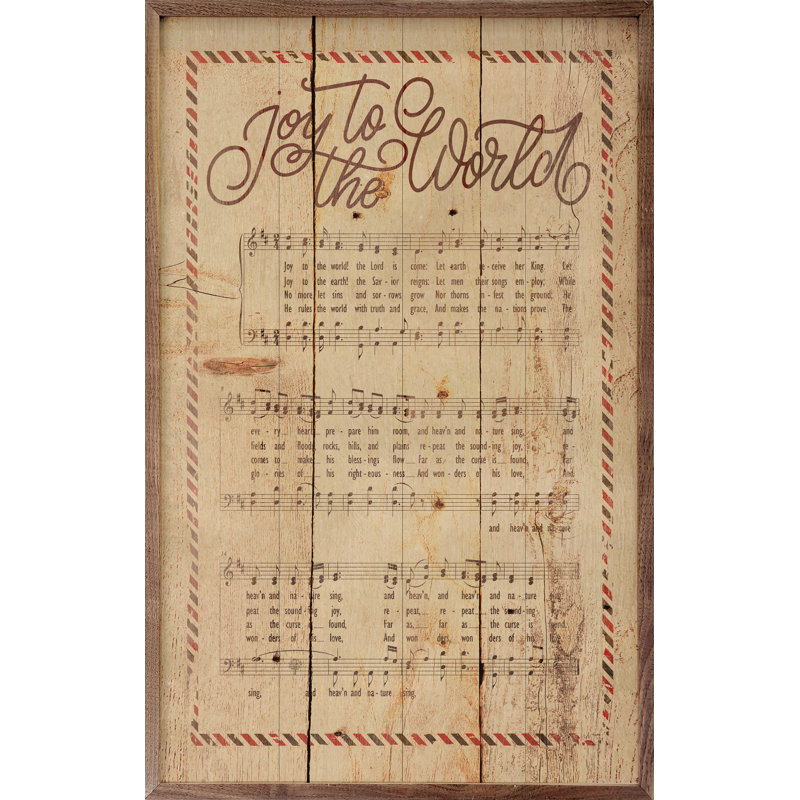 Joy to
the World
Joy to the world! the Lord is come: Let earth re-ceive her King. Let
Joy to the earth! the Sav-ior reigns: Let men their songs em-ploy; While
No more let sins and sor-rows grow Nor thorns in-fest the ground; He
He rules the world with truth and grace, And makes the na-tions prove The
eve-ry heart pre-pare him room, and heav'n and na-ture sing, and
fields and floods, rocks, hills, and plains re-peat the sound-ing joy, re-
comes to make his bless-ings flow Far as the curse is found, Far
glo-ries of his right-eous-ness And won-ders of his love, And
and heav'n and na-ture
heav'n and na-ture sing, and heav'n, and heav'n and na-ture sing.
peat the sound-ing joy, re-peat, re-peat the sound-ing
as the curse is found, Far as, far as the curse is found.
won-ders of his love, And won-ders, won-ders of his love.
sing, and heav'n and na-ture sing.